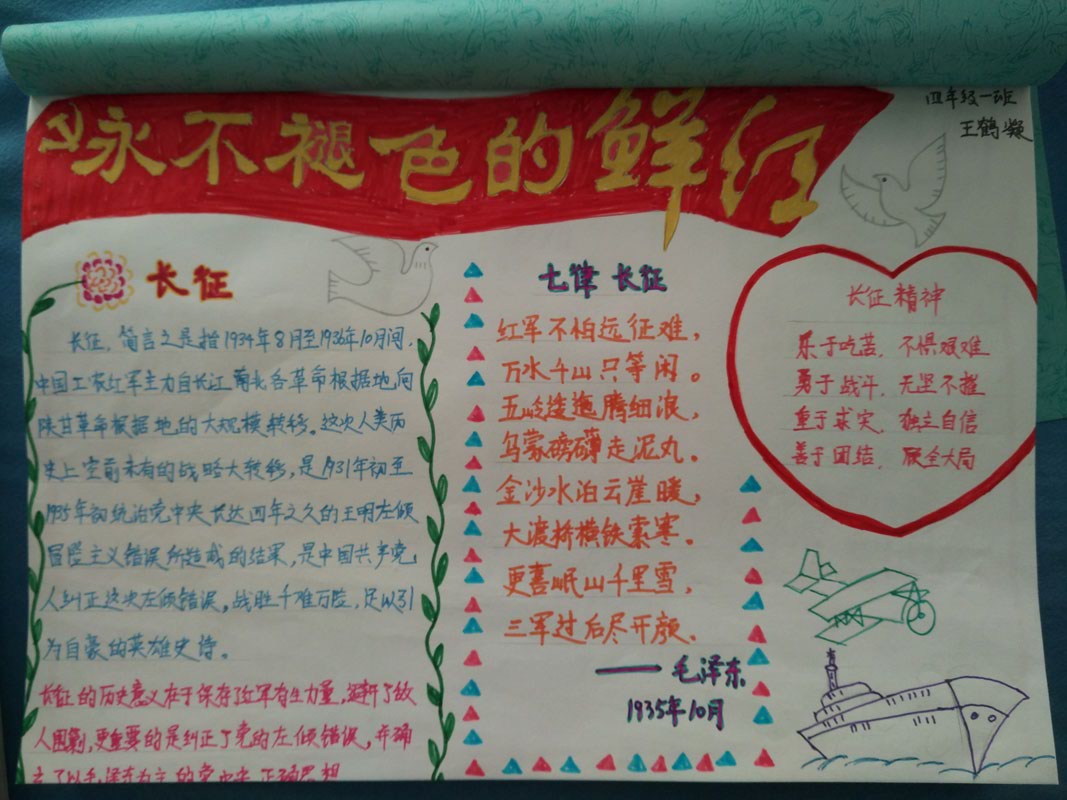 永不褪色的鲜红
四年级一班
王鹤凝
长征
长征，简言之是指1934年8月至1936年10月间，
中国工农红军主力自长江南北各革命根据地向
陕甘革命根据地的大规模转移。这次人类历
史上空前未有的战略大转移，是1931年初至
1935年初统治党中央长达四年之久的王明左倾
冒险主义错误所造成的结果，是中国共产党
人纠正这次左倾错误。战胜千难万险，足以引
为自豪的英雄史诗。
长征的历史意义在于保存了红军有生力量，避开了敌
人围剿，更重要的是纠正了党的左倾错误，并确
立了以毛泽东为主的党中央正确思想
七律 长征
红军不怕远征难，
万水千山只等闲。
五岭逶迤腾细浪，
乌蒙磅礴走泥丸。
金沙水泊云崖暖，
大渡桥横铁索寒。
更喜岷山千里雪，
三军过后尽开颜。
——毛泽东
1935年10月
长征精神
乐于吃苦，不惧艰难
勇于战斗，无坚不摧
重于求实，独立自信
善于团结，顾全大局